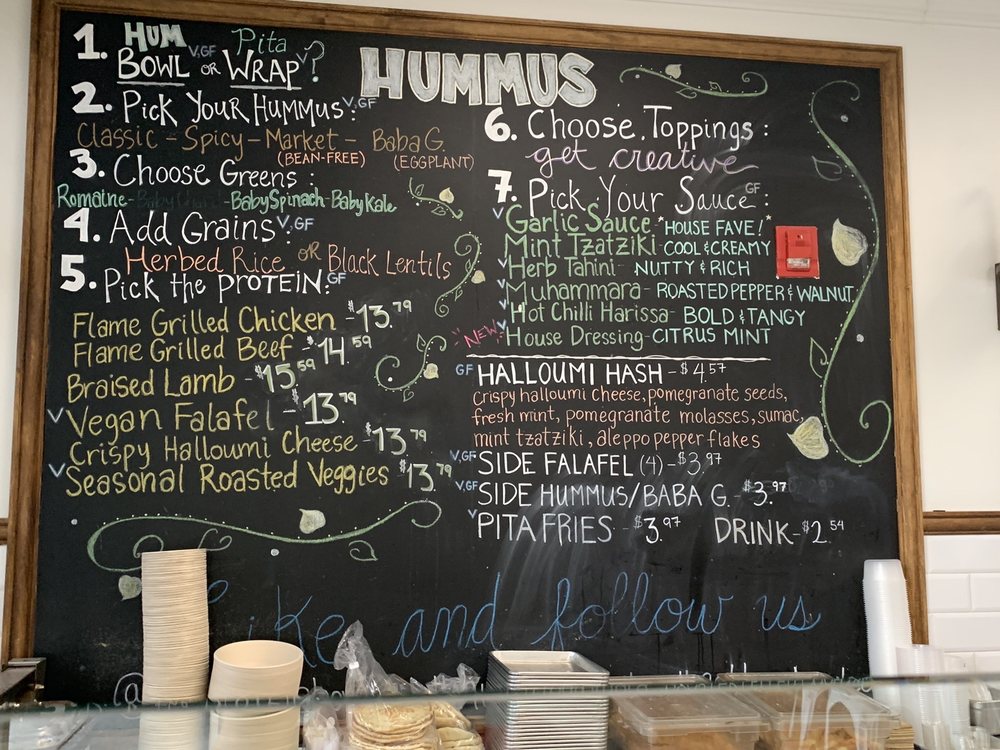 HUMMUS
1. HUM V,GF Pita V
BOWL OR WRAP?
2. Pick Your Hummus V,GF:
Classic - Spicy - Market - Baba G.
(BEAN-FREE) (EGGPLANT)
3. Choose Greens:
Romaine - Baby Spinach - Baby Kale
4. Add Grains V,GF:
Herbed Rice OR Black Lentils
5. Pick the PROTEIN GF:
Flame Grilled Chicken - $13.79
Flame Grilled Beef - $14.59
Braised Lamb - $15.59
V Vegan Falafel - $13.79
Crispy Halloumi Cheese - $13.79
V Seasonal Roasted Veggies - $13.79
6. Choose Toppings:
get creative
7. Pick Your Sauce GF:
V Garlic Sauce *HOUSE FAVE!*
Mint Tzatziki - COOL & CREAMY
V Herb Tahini - NUTTY & RICH
V Muhammara - ROASTED PEPPER & WALNUT
V Hot Chilli Harissa - BOLD & TANGY
NEW! V House Dressing - CITRUS MINT
GF HALLOUMI HASH - $4.57
crispy halloumi cheese, pomegranate seeds,
fresh mint, pomegranate molasses, sumac,
mint tzatziki, aleppo pepper flakes
V,GF SIDE FALAFEL (4) - $3.97
V,GF SIDE HUMMUS/BABA G. - $3.97
V PITA FRIES - $3.97 DRINK - $2.54
Like and follow us
@